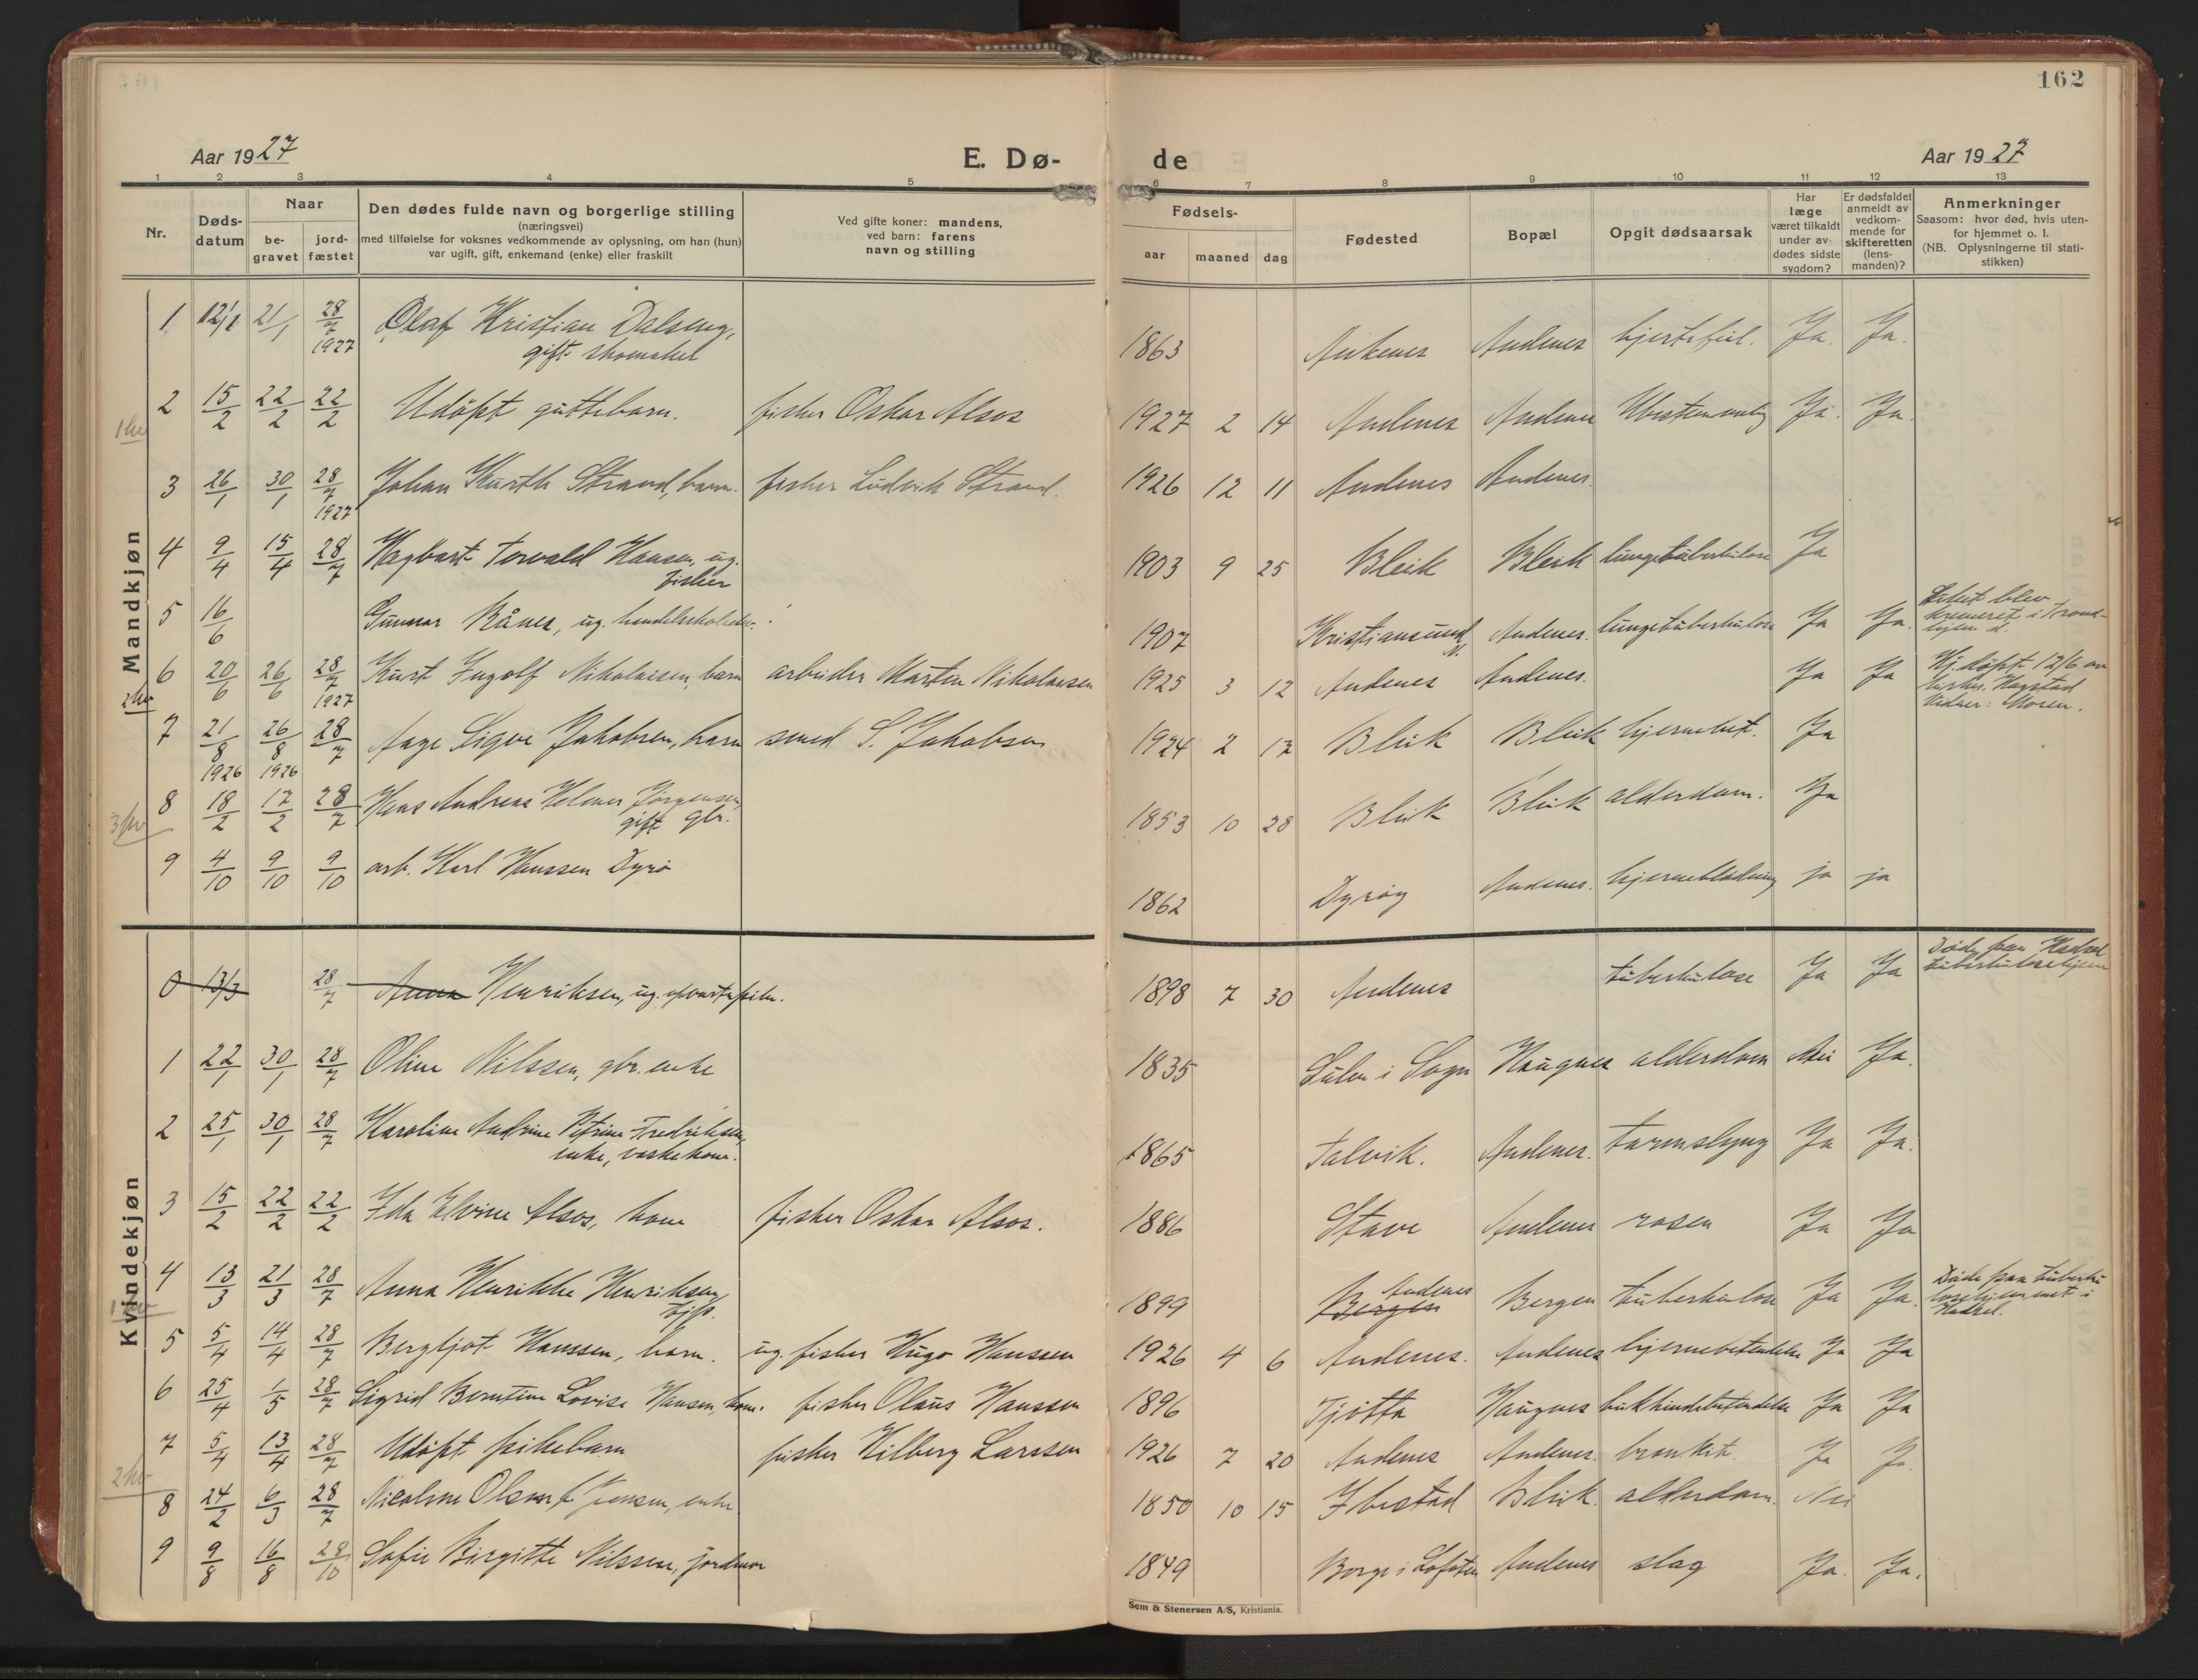 162
Aar 1927
E. Dø-
de
Aar 1927
1 2 3 4 5 6 7 8 9 10 11 12 13
Nr.
Døds-
datum
Naar
be-
gravet
jord-
fæstet
Den dødes fulde navn og borgerlige stilling
(næringsvei)
med tilføielse for voksnes vedkommende av oplysning, om han (hun)
var ugift, gift, enkemand (enke) eller fraskilt
Ved gifte koner: mandens,
ved barn: farens
navn og stilling
Fødsels-
aar maaned dag
Fødested
Bopæl
Opgit dødsaarsak
Har
læge
været tilkaldt
under av-
dødes sidste
sygdom?
Er dødsfaldet
anmeldt av
vedkom-
mende for
skifteretten
(lens-
manden)?
Anmerkninger
Saasom: hvor død, hvis uten-
for hjemmet o. l.
(NB. Oplysningerne til stati-
stikken)
Mandkjøn
1 12/1 21/1 28/7 1927 Olaf Kristian Dalseng,
gift skomaker
1863 Ankenes Andenes hjertefeil. Ja. Ja.
2 15/2 22/2 22/2 Udöpt guttebarn. fisker Oskar Alsos 1927 2 14 Andenes Andenes Ja. Ja.
3 26/1 30/1 28/7 1927 Johan Kurth Strand, barn. fisker Ludvik Strand. 1926 12 11 Andenes Andenes.
4 9/4 15/4 28/7 Hagbart Torvald Hansen, ug.
fisker
1903 9 25 Bleik Bleik lungetuberkulose Ja
5 16/6 Gunnar Rånes, ug. 1907 Kristiansund N. Andenes. lungetuberkulose Ja Ja.
blev
kremeret i Trond-
hjem
6 20/6 26/6 28/7 1927 Kurt Ingolf Nikolaisen, barn arbeider Marten Nikolaisen 1925 3 12 Andenes Andenes. Ja Ja
Hj. döpt 12/6 av
Hagstad
7 21/8 1926 26/8 1926 28/7 Aage Sigve Jakobsen, barn smed S. Jakobsen 1924 2 17 Bleik Bleik hjernebet. Ja
8 18/2 17/2 28/7 Hans Andreas Helmer Jörgensen,
gift gbr.
1853 10 28 Bleik Bleik alderdom. Ja
9 4/10 9/10 9/10 arb. Karl Hanssen Dyrö 1862 Dyröy Andenes. hjerneblödning ja ja
Kvindekjøn
0 13/3 28/7 Anna Henriksen, ug. 1898 7 30 Andenes tuberkulose Ja Ja
Döde paa Hadsel
tuberkulosehjem
1 22/1 30/1 28/7 Oline Nilssen, gbr. enke 1835 Sulen i Sogn Haugnes alderdom Nei Ja.
2 25/1 30/1 28/7 Karoline Andrine Petrine Fredriksen,
enke, vaskekone.
1865 Talvik. Andenes. tarmslyng Ja Ja.
3 15/2 22/2 22/2 Ida Elvine Alsos, kone fisker Oskar Alsos. 1886 Stave Andenes rosen Ja Ja
4 13/3 21/3 28/7 Anna Henrikke Henriksen,
tjp.
1899 Bergen Andenes Bergen tuberkulose Ja Ja.
Döde paa tuberku-
losehjemmet i
Hadsel.
5 5/4 14/4 28/7 Bergljot Hanssen, barn. ug. fisker Hugo Hanssen 1926 4 6 Andenes. Andenes hjernebetendelse Ja Ja
6 25/4 1/5 28/7 Sigrid Berntine Lovise Hansen, kone. fisker Olaus Hanssen 1896 Tjötta Haugnes bukhindebetendelse Ja Ja
7 5/4 13/4 28/7 Udöpt pikebarn fisker Hilberg Larssen 1926 7 20 Andenes Andenes. bronkit. Ja Ja.
8 24/2 6/3 28/7 Nicoline Jensen, enke 1850 10 15 Ibestad Bleik. alderdom. Nei
9 9/8 16/8 28/10 Sofie Birgitte Nilssen, jordmor 1849 Borge i Lofoten Andenes slag Ja. Ja.
Sem & Stenersen A/S, Kristiania.